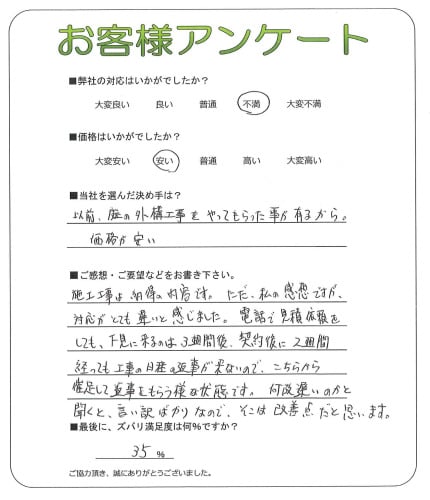 お客様アンケート
■弊社の対応はいかがでしたか？
大変良い 良い 普通 不満 大変不満
■価格はいかがでしたか？
大変安い 安い 普通 高い 大変高い
■当社を選んだ決め手は？
以前、庭の外構工事をやってもらった事が有るから。
価格が安い
■ご感想・ご要望などをお書き下さい。
施工工事は納得の内容です。ただ、私の感想ですが、
対応がとても遅いと感じました。電話で見積依頼を
しても、下見に来るのは3週間後、契約後に2週間
経っても工事の日程の返事が来ないので、こちらから
催促して返事をもらう様な状態です。何故遅いのかと
聞くと、言い訳ばかりなので、そこは改善点だと思います。
■最後に、ズバリ満足度は何%ですか？
35 %
ご協力頂き、誠にありがとうございました。